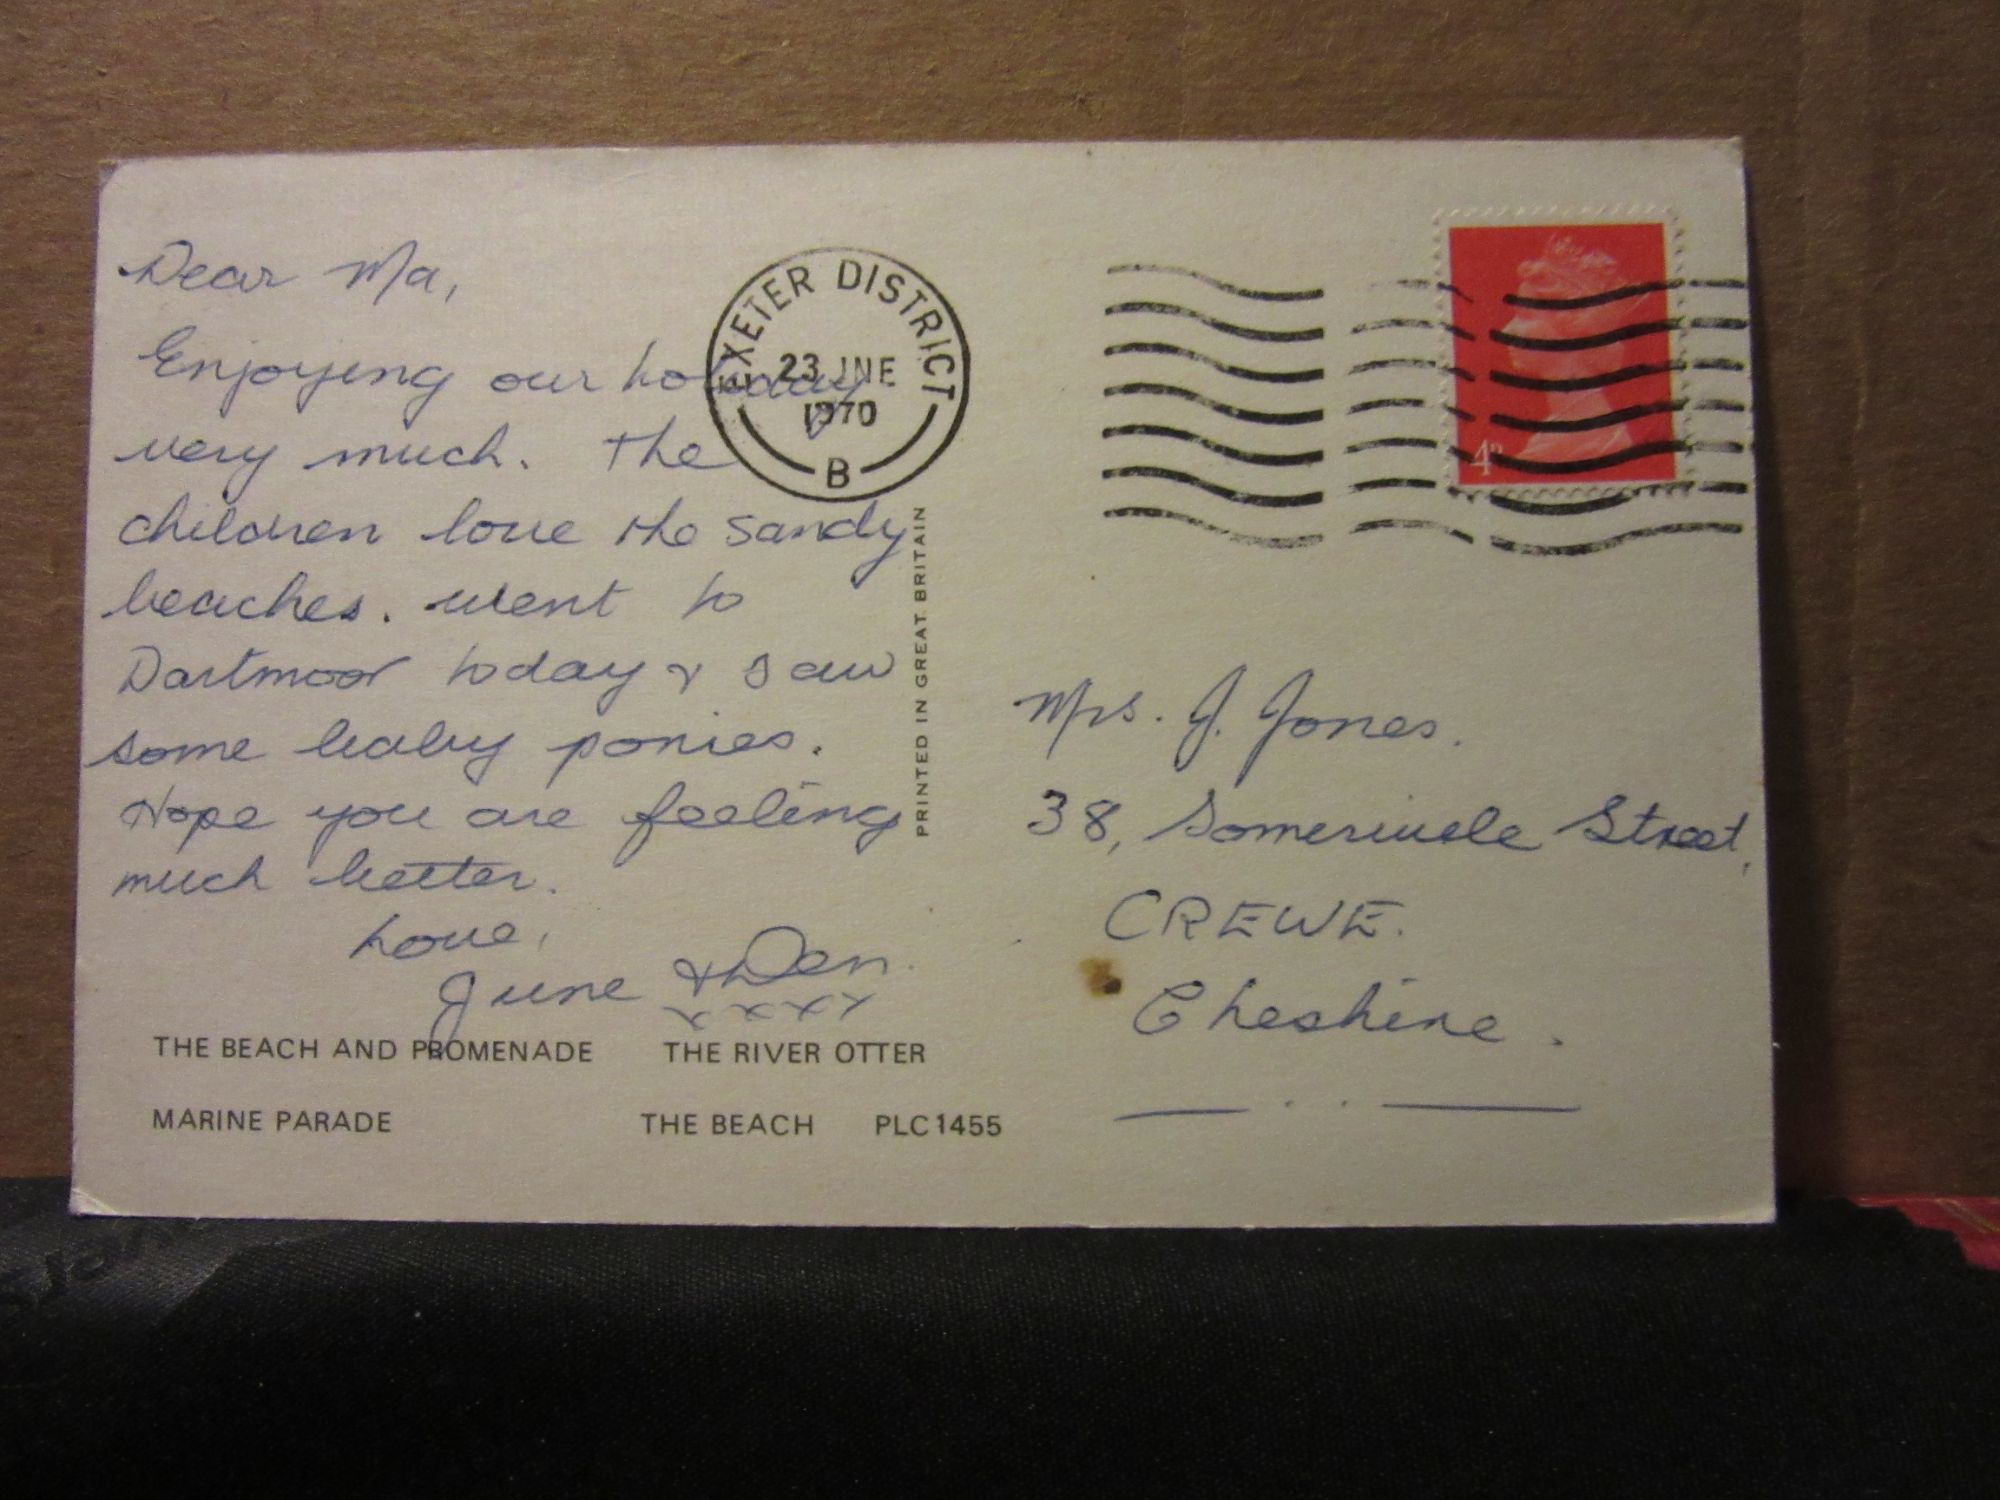 Dear Ma,
Enjoying our holiday
very much. The
children love the sandy
beaches. went to
Dartmoor today & saw
some baby ponies.
Hope you are feeling
much better.
Love,
June & Den.
x x x x
THE BEACH AND PROMENADE THE RIVER OTTER
MARINE PARADE THE BEACH PLC1455
EXETER DISTRICT
23 JNE
1970
B
PRINTED IN GREAT BRITAIN
4D
Mrs. J. Jones.
38, Somerville Street,
CREWE.
Cheshire.